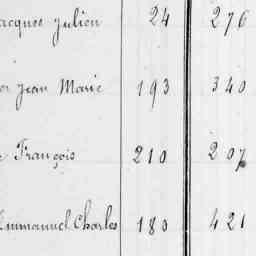 Jacques Julien 24 276
Jean Marie 193 340
François 210 207
Emmanuel Charles 180 421